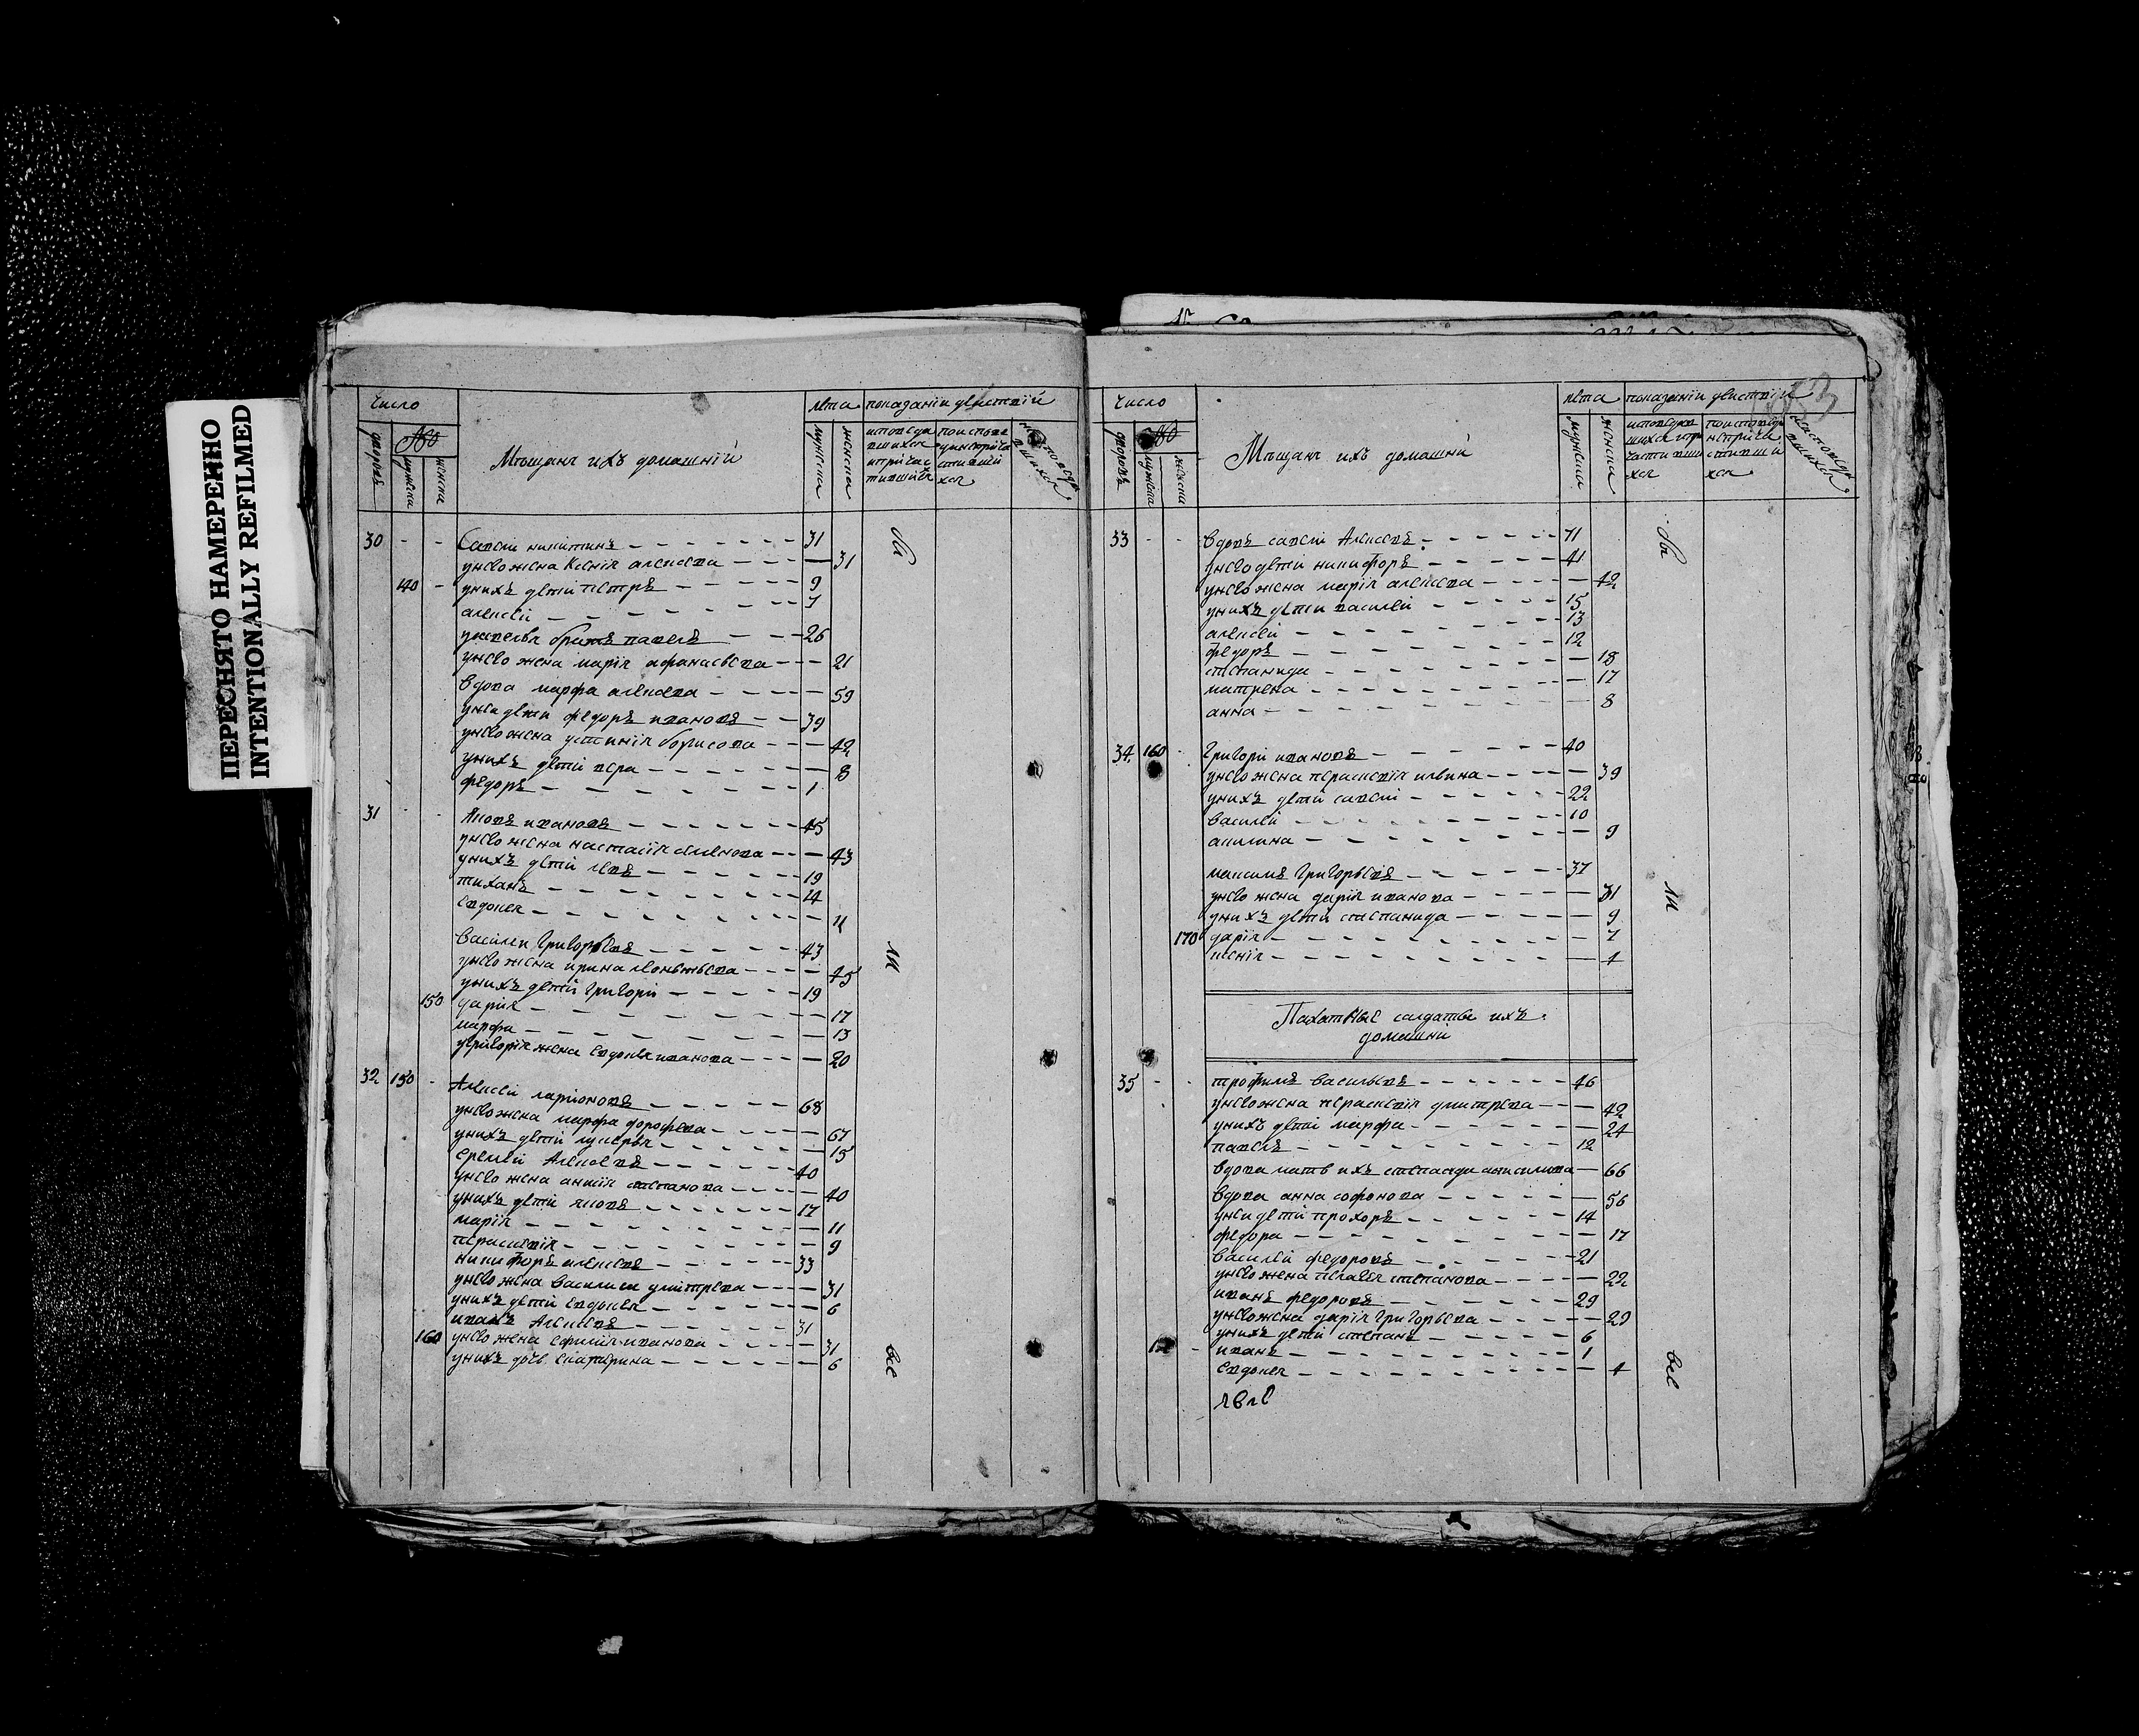 ПЕРЕСНЯТО НАМЕРЕННО
INTENTIONALLY REFILMED
число
лета показаніи действій
дворовъ
мужеска
женска
Мещанъ ихъ домашній
мужеска
женска
30 - - Савели никитинъ 31
унево жена Ксенія алексева 31
140 - унихъ дети петръ 9
алексеи 7
усавелья братъ павелъ 26
унево жена марія афанасьева 21
вдова марфа алексева 59
унеи дети федоръ ивановъ 39
унево жена устинія борисова 42
унихъ дети вера 8
федоръ 1
31 - - Яковъ ивановъ 45
унево жена настасія 43
унихъ дети левъ 19
тиханъ 14
евдокея 11
василеи григорьевъ 43
унево жена ирина леоньтьева 45
унихъ дети григори 19
150 дария 17
марфа 13
угригорія жена евдокея иванова 20
32 150 - Алексеи ларионовъ 68
унево жена марфа дорофева 67
унихъ дети лукерья 15
еремеи Алексевъ 40
унево жена анния степанова 40
унихъ дети яковъ 17
марія 11
пераскевія 9
никифоръ алексевъ 33
унево жена василиса дмитрева 31
унихъ дети евдокея 6
иванъ Алексевъ 31
160 унево жена ефимія иванова 31
унихъ дочь екатерина 6
ли
все
число
лета показаніи действіи
дворовъ
мужеска
женска
Мещанъ ихъ домашни
мужеска
женска
33 - - вдовъ савели Алексевъ 71
унево дети никифоръ 41
унево жена марія алексева 42
унихъ дети василеи 15
алексеи 13
федоръ 12
степанида 18
матрена 17
анна 8
34 160 - Григори ивановъ 40
унево жена пераскевія ильина 39
унихъ дети савели 22
василеи 10
акилина 9
максимъ григорьевъ 37
унево жена дарія иванова 31
унихъ дети степанида 9
170 дарія 7
ксенія 4
Пахатные салдаты ихъ
домашни
35 - - трофимъ васильевъ 46
унево жена пераскевія дмитрева 42
унихъ дети марфа 24
павелъ 12
вдова мать ихъ 66
вдова анна софонова 56
унеи дети прохоръ 14
федора 17
василеи федоровъ 21
унево жена пелагея степанова 22
иванъ федоровъ 29
унево жена дарія григорьева 29
унихъ дети степанъ 6
иванъ 1
евдокея 4
ли
все